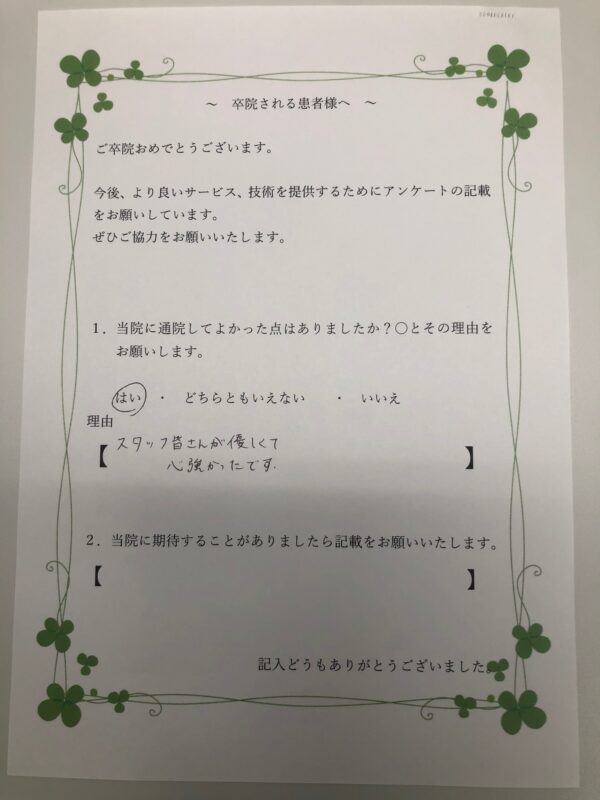 ～ 卒院される患者様へ ～
ご卒院おめでとうございます。
今後、より良いサービス、技術を提供するためにアンケートの記載
をお願いしています。
ぜひご協力をお願いいたします。
1．当院に通院してよかった点はありましたか？〇とその理由を
お願いします。
はい ・ どちらともいえない ・ いいえ
理由
【 スタッフ皆さんが優しくて
心強かったです. 】
2．当院に期待することがありましたら記載をお願いいたします。
【 】
記入どうもありがとうございました。